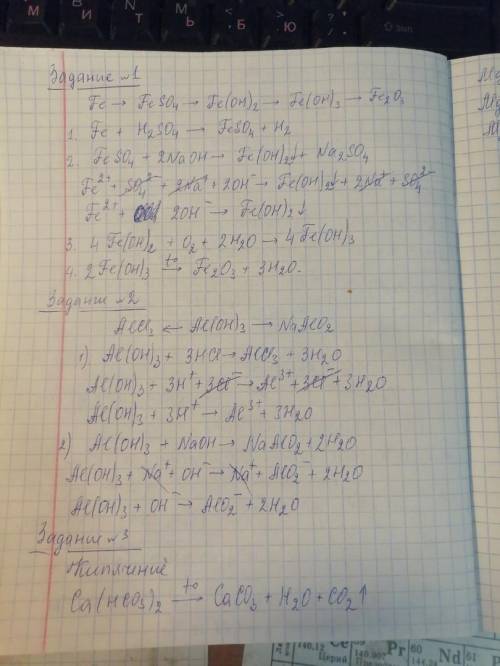 Задание №1
Fe → FeSO₄ → Fe(OH)₂ → Fe(OH)₃ → Fe₂O₃
1. Fe + H₂SO₄ → FeSO₄ + H₂
2. FeSO₄ + 2NaOH → Fe(OH)₂↓ + Na₂SO₄
Fe²⁺ + SO₄²⁻ + 2Na⁺ + 2OH⁻ → Fe(OH)₂↓ + 2Na⁺ + SO₄²⁻
Fe²⁺ + 2OH⁻ → Fe(OH)₂↓
3. 4Fe(OH)₂ + O₂ + 2H₂O → 4Fe(OH)₃
4. 2Fe(OH)₃ →t° Fe₂O₃ + 3H₂O.
Задание №2
AlCl₃ ← Al(OH)₃ → NaAlO₂
1) Al(OH)₃ + 3HCl → AlCl₃ + 3H₂O
Al(OH)₃ + 3H⁺ + 3Cl⁻ → Al³⁺ + 3Cl⁻ + 3H₂O
Al(OH)₃ + 3H⁺ → Al³⁺ + 3H₂O
2) Al(OH)₃ + NaOH → NaAlO₂ + 2H₂O
Al(OH)₃ + Na⁺ + OH⁻ → Na⁺ + AlO₂⁻ + 2H₂O
Al(OH)₃ + OH⁻ → AlO₂⁻ + 2H₂O
Задание №3
Кипячение
Ca(HCO₃)₂ →t° CaCO₃ + H₂O + CO₂↑
Pr 60 Nd 61